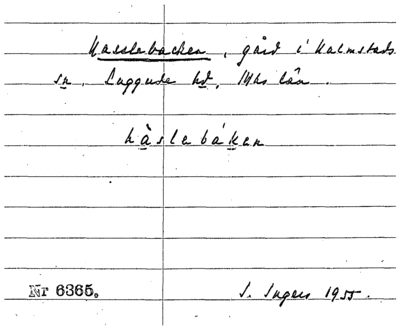 Hasslebacken, gård i Halmstads
sn, Luggude hd, Mhs län.
hàslebáken
Nr 6365.
S. Ingers 1955